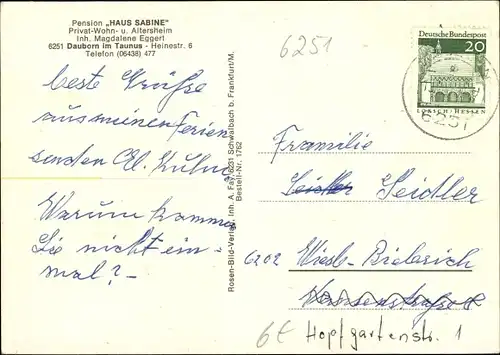 Pension „HAUS SABINE"
Privat-Wohn- u. Altersheim
Inh. Magdalene Eggert
6251 Dauborn im Taunus - Heinestr. 6
Telefon (06438) 477
6251
Deutsche Bundespost
20
LORSCH/HESSEN
6251
beste Grüße
aus meinen Ferien
senden El. Kuhn
Warum kommen
Sie nicht ein-
mal? -
Rosen-Bild-Verlag Inh. A. Fay, 6231 Schwalbach b. Frankfurt/M.
Bestell-Nr. 1762
Framilie
Seidler Seidler
6202 Wiesb.-Bieberich
Hopfgartenstr. 1
6€